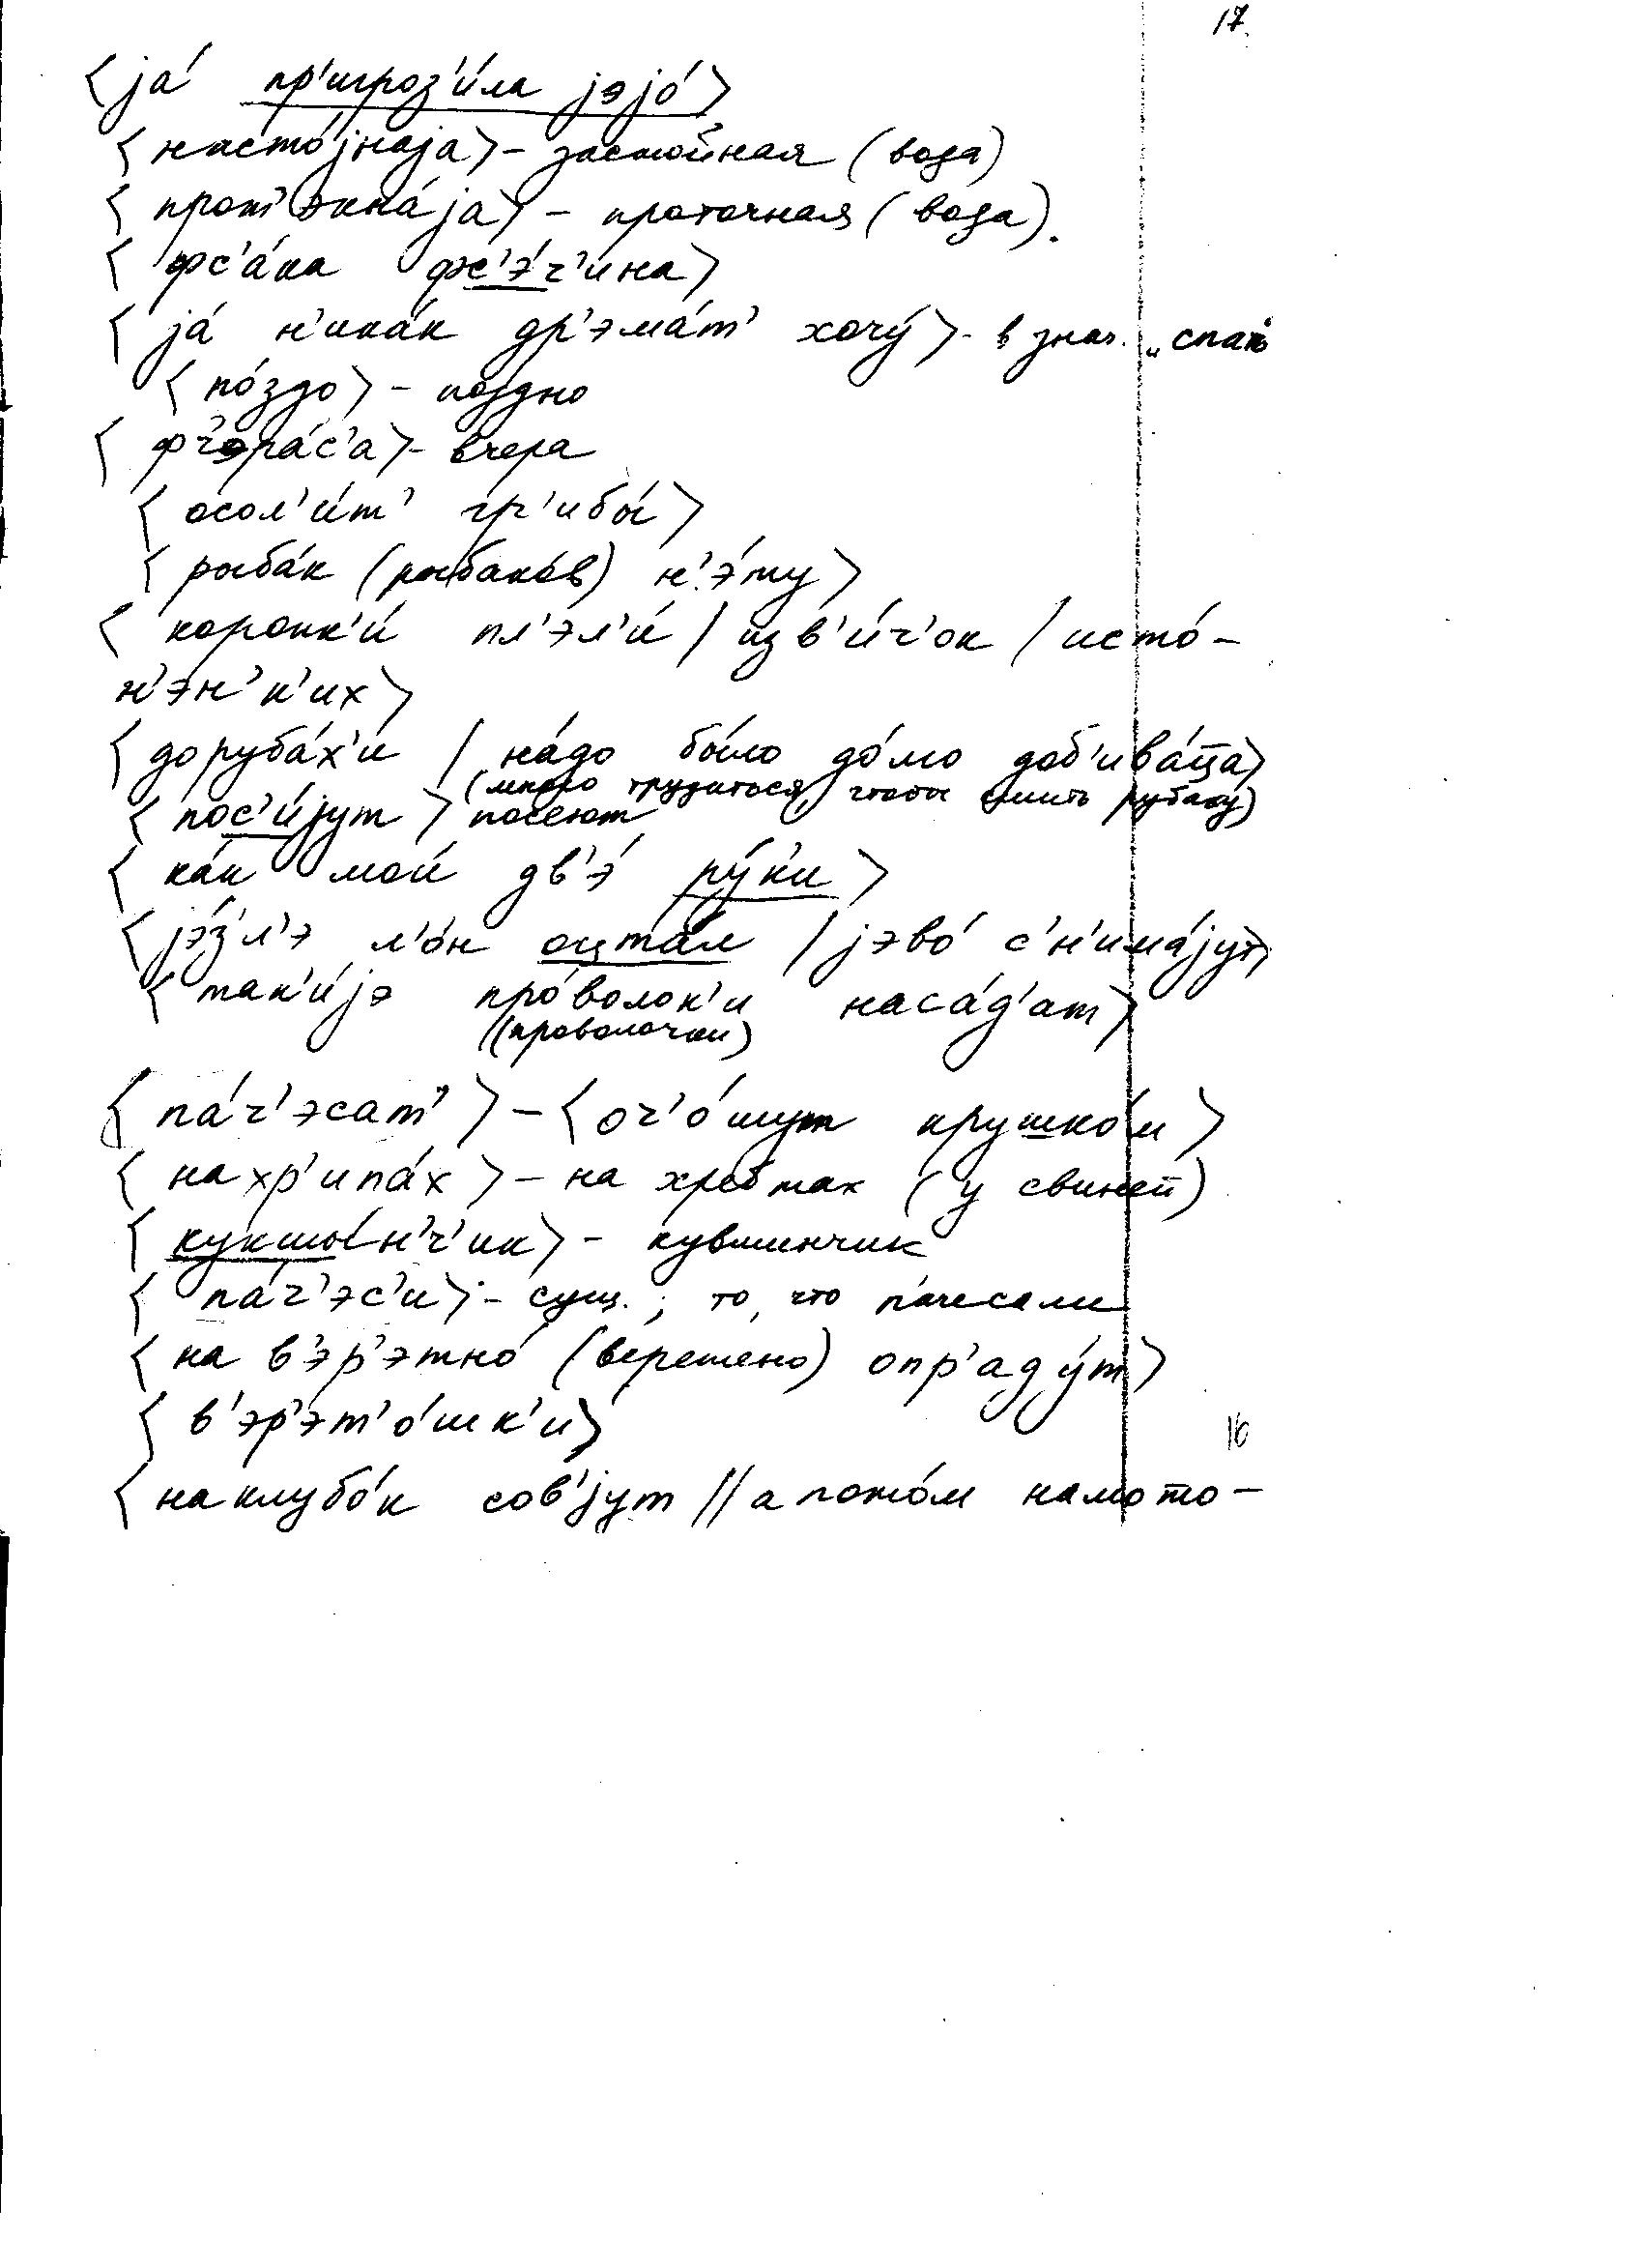 17.
⟨ја́ пр'игроз'и́ла јэјо́⟩
⟨настој́наја⟩ – застойная (вода)
⟨прот'экна́ја⟩ – проточная (вода).
⟨фс'а́ка фс'э́ч'ина⟩
⟨ја́ н'ика́к др'эма́т' хочу́⟩ - в знач. „спать
⟨по́здо⟩ – поздно
⟨фч'эра́с'а⟩ - вчера
⟨осол'и́т' гр'ибы́⟩
⟨рыба́к (рыбако́в) н'э́ту⟩
⟨коропк'и́ пл'эл'и́ / изв'и́ч'ок / исто́-
н'эн'к'их⟩
⟨до руба́х'и / на́до бы́ло до́лго доб'ива́ца⟩
(много трудиться, чтобы сшить рубаху)
⟨пос'и́јут⟩ посеют
⟨ка́к мои́ дв'э́ ру́ки⟩
⟨јэ́з'л'э л'о́н оцта́л / јэво́ с'н'има́јут⟩
⟨так'и́јэ про́волок'и наса́д'ат⟩
(проволочки)
⟨па́ч'эсат'⟩ – ⟨оч'о́шут крушко́м⟩
⟨на хр'ипа́х⟩ – на хребтах (у свиней)
⟨кукшы́н'ч'ик⟩ – кувшинчик
⟨па́ч'эс'и⟩ – сущ.; то, что пачесали
⟨на в'эр'этно́ (веретено) опр'аду́т⟩
⟨в'эр'эт'о́шк'и⟩
16
⟨на клубо́к сов'јут // а пото́м намото-